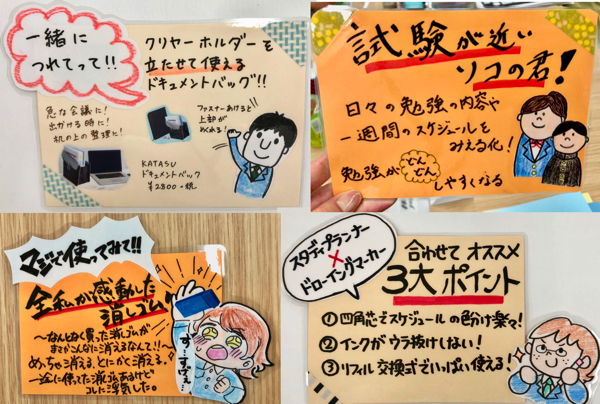 一緒に
つれてって!!
クリヤーホルダーを
立たせて使える
ドキュメントバッグ!!
急な会議に!
出かける時に!
机の上の整理に!
ファスナーあけると
上部が
めくれる!
KATASU
ドキュメントバッグ
¥2800+税
試験が近い
ソコの君!
日々の勉強の内容や
一週間のスケジュールを
みえる化!
勉強が
どん
どん
しやすくなる
マジで使ってみて!!
全私が感動した
消しゴム!
〜なんとなく買った消しゴムが
まさかこんなに消えるなんて!!〜
めっちゃ消える、とにかく消える、
一途に使ってた消しゴムあるけど
コレに浮気した。
す…すげぇ…
スタディプランナー
×
ドローイングマーカー
合わせてオススメ
3大ポイント
①四角芯でスケジュールの色分け楽々!
②インクがウラ抜けしない!
③リフィル交換式でいっぱい使える!